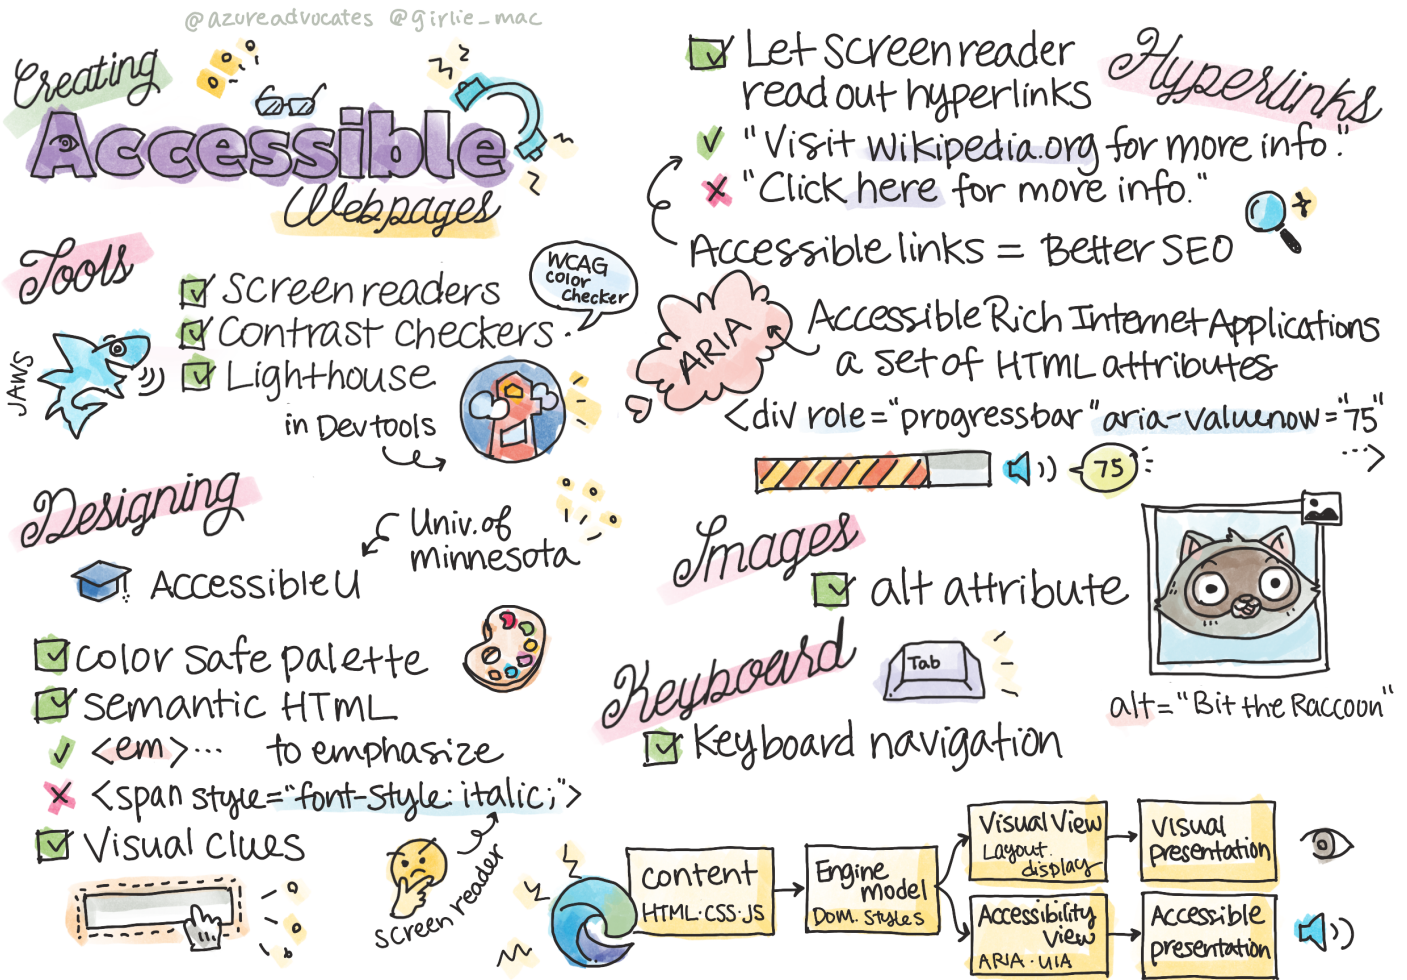 @azureadvocates @girlie_mac
Creating
Accessible
Webpages
Tools
Screen readers
Contrast checkers
Lighthouse
in Devtools
WCAG
color
checker
JAWS
Designing
Univ. of
minnesota
Accessible U
color safe palette
semantic HTML
<em>... to emphasize
<span style="font-style: italic;">
Visual clues
screen reader
Hyperlinks
Let screen reader
read out hyperlinks
"Visit wikipedia.org for more info."
"Click here for more info."
Accessible links = Better SEO
ARIA
Accessible Rich Internet Applications
a set of HTML attributes
<div role="progressbar" aria-valuenow="75"
...>
75
Images
alt attribute
alt="Bit the Raccoon"
Keyboard
Tab
Keyboard navigation
content
HTML·CSS·JS
Engine
model
DOM. Styles
Visual View
Layout.
display
Visual
presentation
Accessibility
View
ARIA·UIA
Accessible
presentation